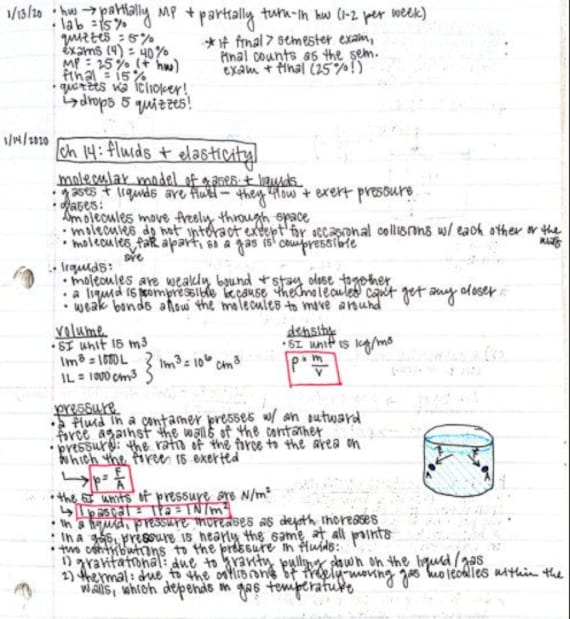 1/13/20
• hw → partially MP + partially turn-in hw (1-2 per week)
• lab = 15%
quizzes = 5%
exams (4) = 40%
MP = 25% (+ hw)
final = 15%
* if final > semester exam,
final counts as the sem.
exam + final (25%!)
• quizzes via iClicker!
↳ drops 5 quizzes!
1/14/2020
ch 14: fluids + elasticity
molecular model of gases + liquids
• gases + liquids are fluid - they flow + exert pressure
• gases:
• molecules move freely through space
• molecules do not interact except for occasional collisions w/ each other or the
walls
• molecules far apart, so a gas is compressible
are
• liquids:
• molecules are weakly bound + stay close together
• a liquid is incompressible because the molecules can't get any closer
• weak bonds allow the molecules to move around
volume
• SI unit is m³
1m³ = 1000L
1L = 1000cm³
} 1m³ = 10⁶ cm³
density
• SI unit is kg/m³
ρ = m/V
pressure
• a fluid in a container presses w/ an outward
force against the walls of the container
• pressure: the ratio of the force to the area on
which the force is exerted
↳ p = F/A
• the SI units of pressure are N/m²
↳ 1 pascal = 1Pa = 1N/m²
• in a liquid, pressure increases as depth increases
• in a gas, pressure is nearly the same at all points
• two contributions to the pressure in fluids:
1) gravitational: due to gravity pulling down on the liquid/gas
2) thermal: due to the collisions of freely-moving gas molecules within the
walls, which depends on gas temperature
F
F
A
A